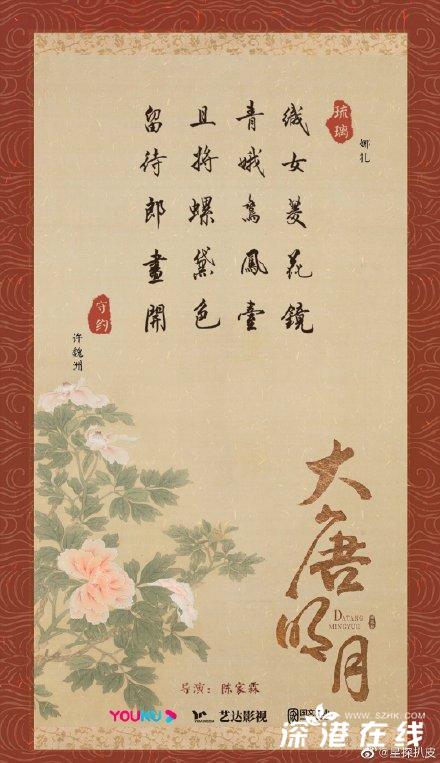 琉璃
娜扎
织女菱花镜
青娥鸾凤台
且将螺黛色
留待郎画开
守约
许魏洲
大唐明月
DATANG
MINGYUE
导演：陈家霖
YOUKU
艺达影视
WWW.SZHK.COM
深港在线
@星探扒皮